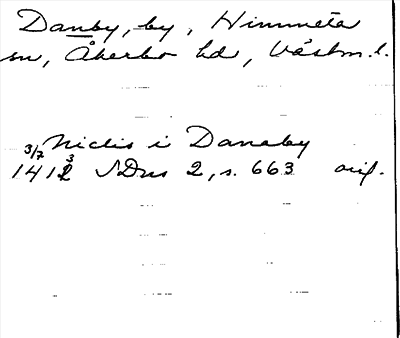 Danby, by, Himmeta
sn, Åkerbo hd, Västm. l.
Niclis i Danaby
3/7 1413 SDns 2, s. 663 orig.